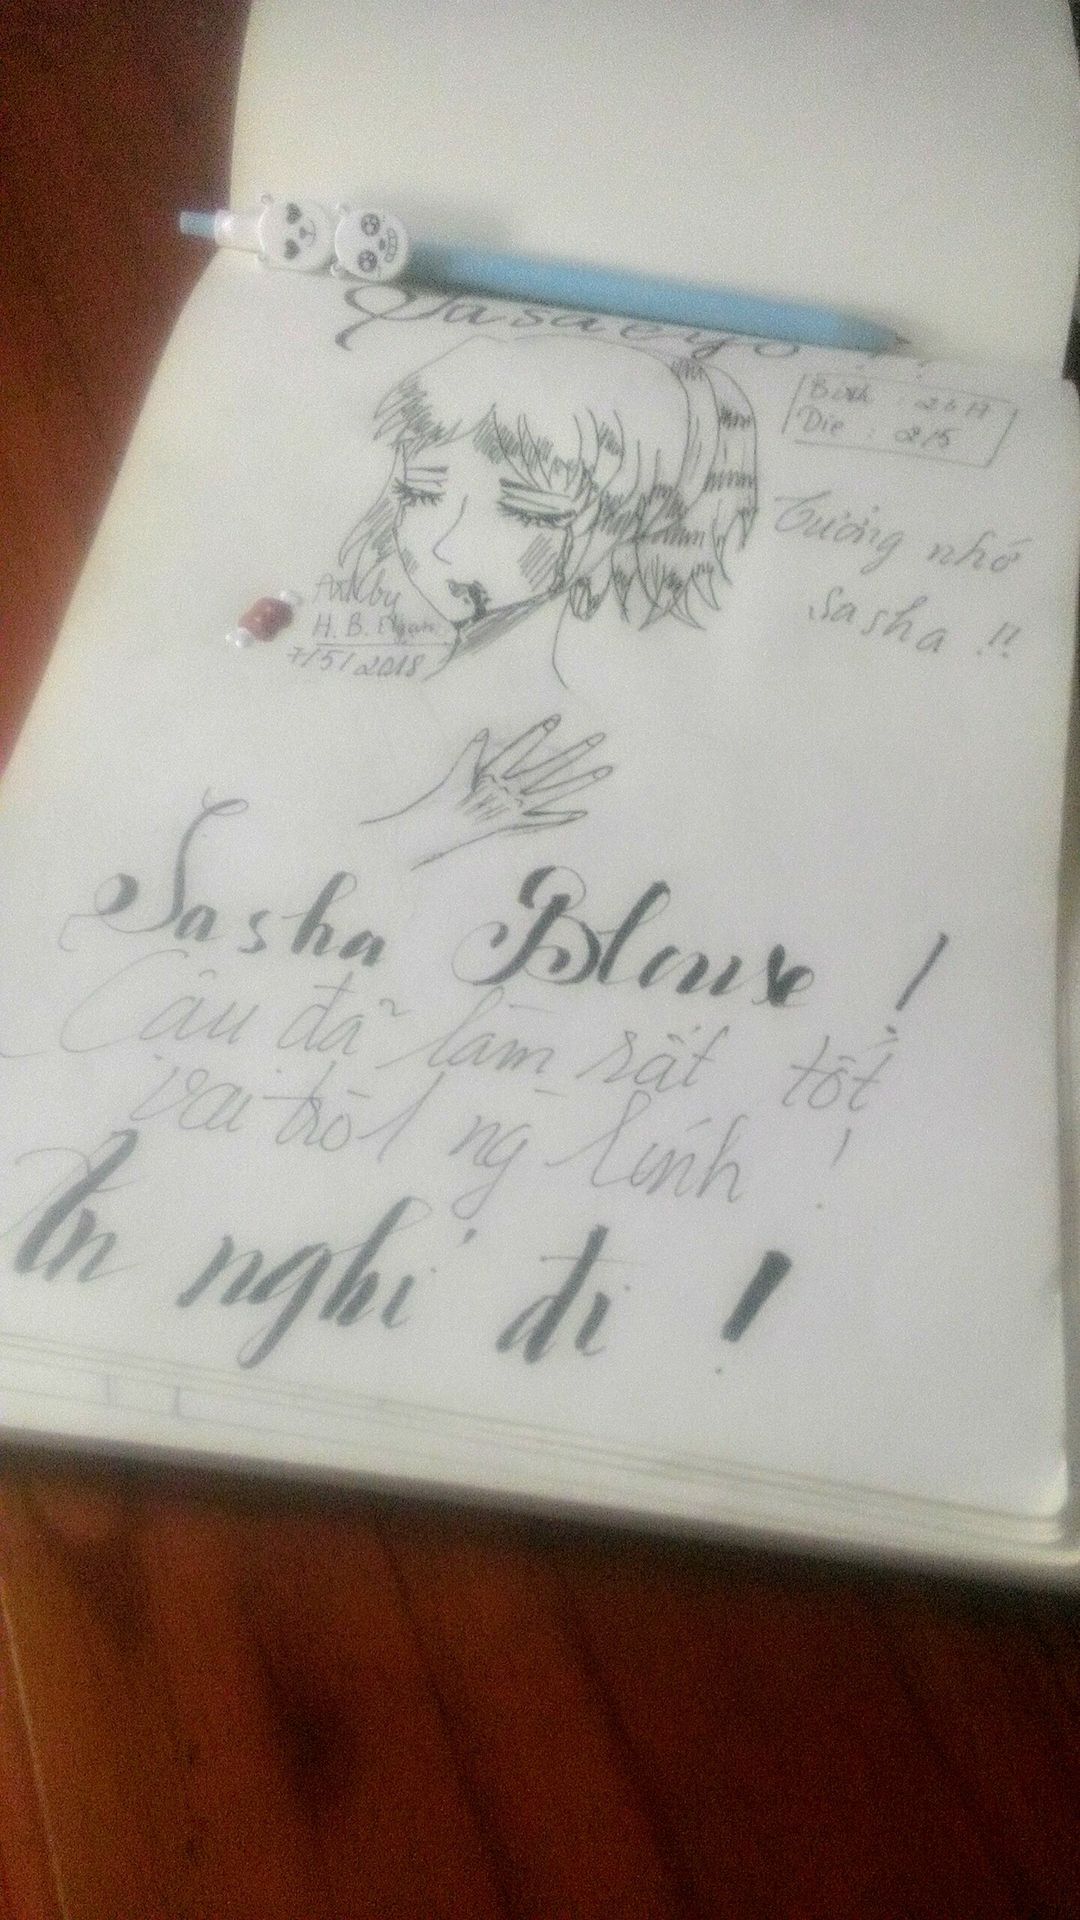 Sasaeyo
Birth : 26/7
Die : 2/5
Tưởng nhớ
Sasha !!
Art by
H. B.
7/5/2018
Sasha Blouse !
Cậu đã làm rất tốt
vai trò 1 ng lính !
An nghỉ đi !